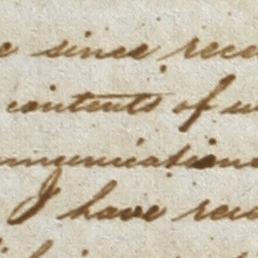 e since rece
contents of
mmunications
I have rece